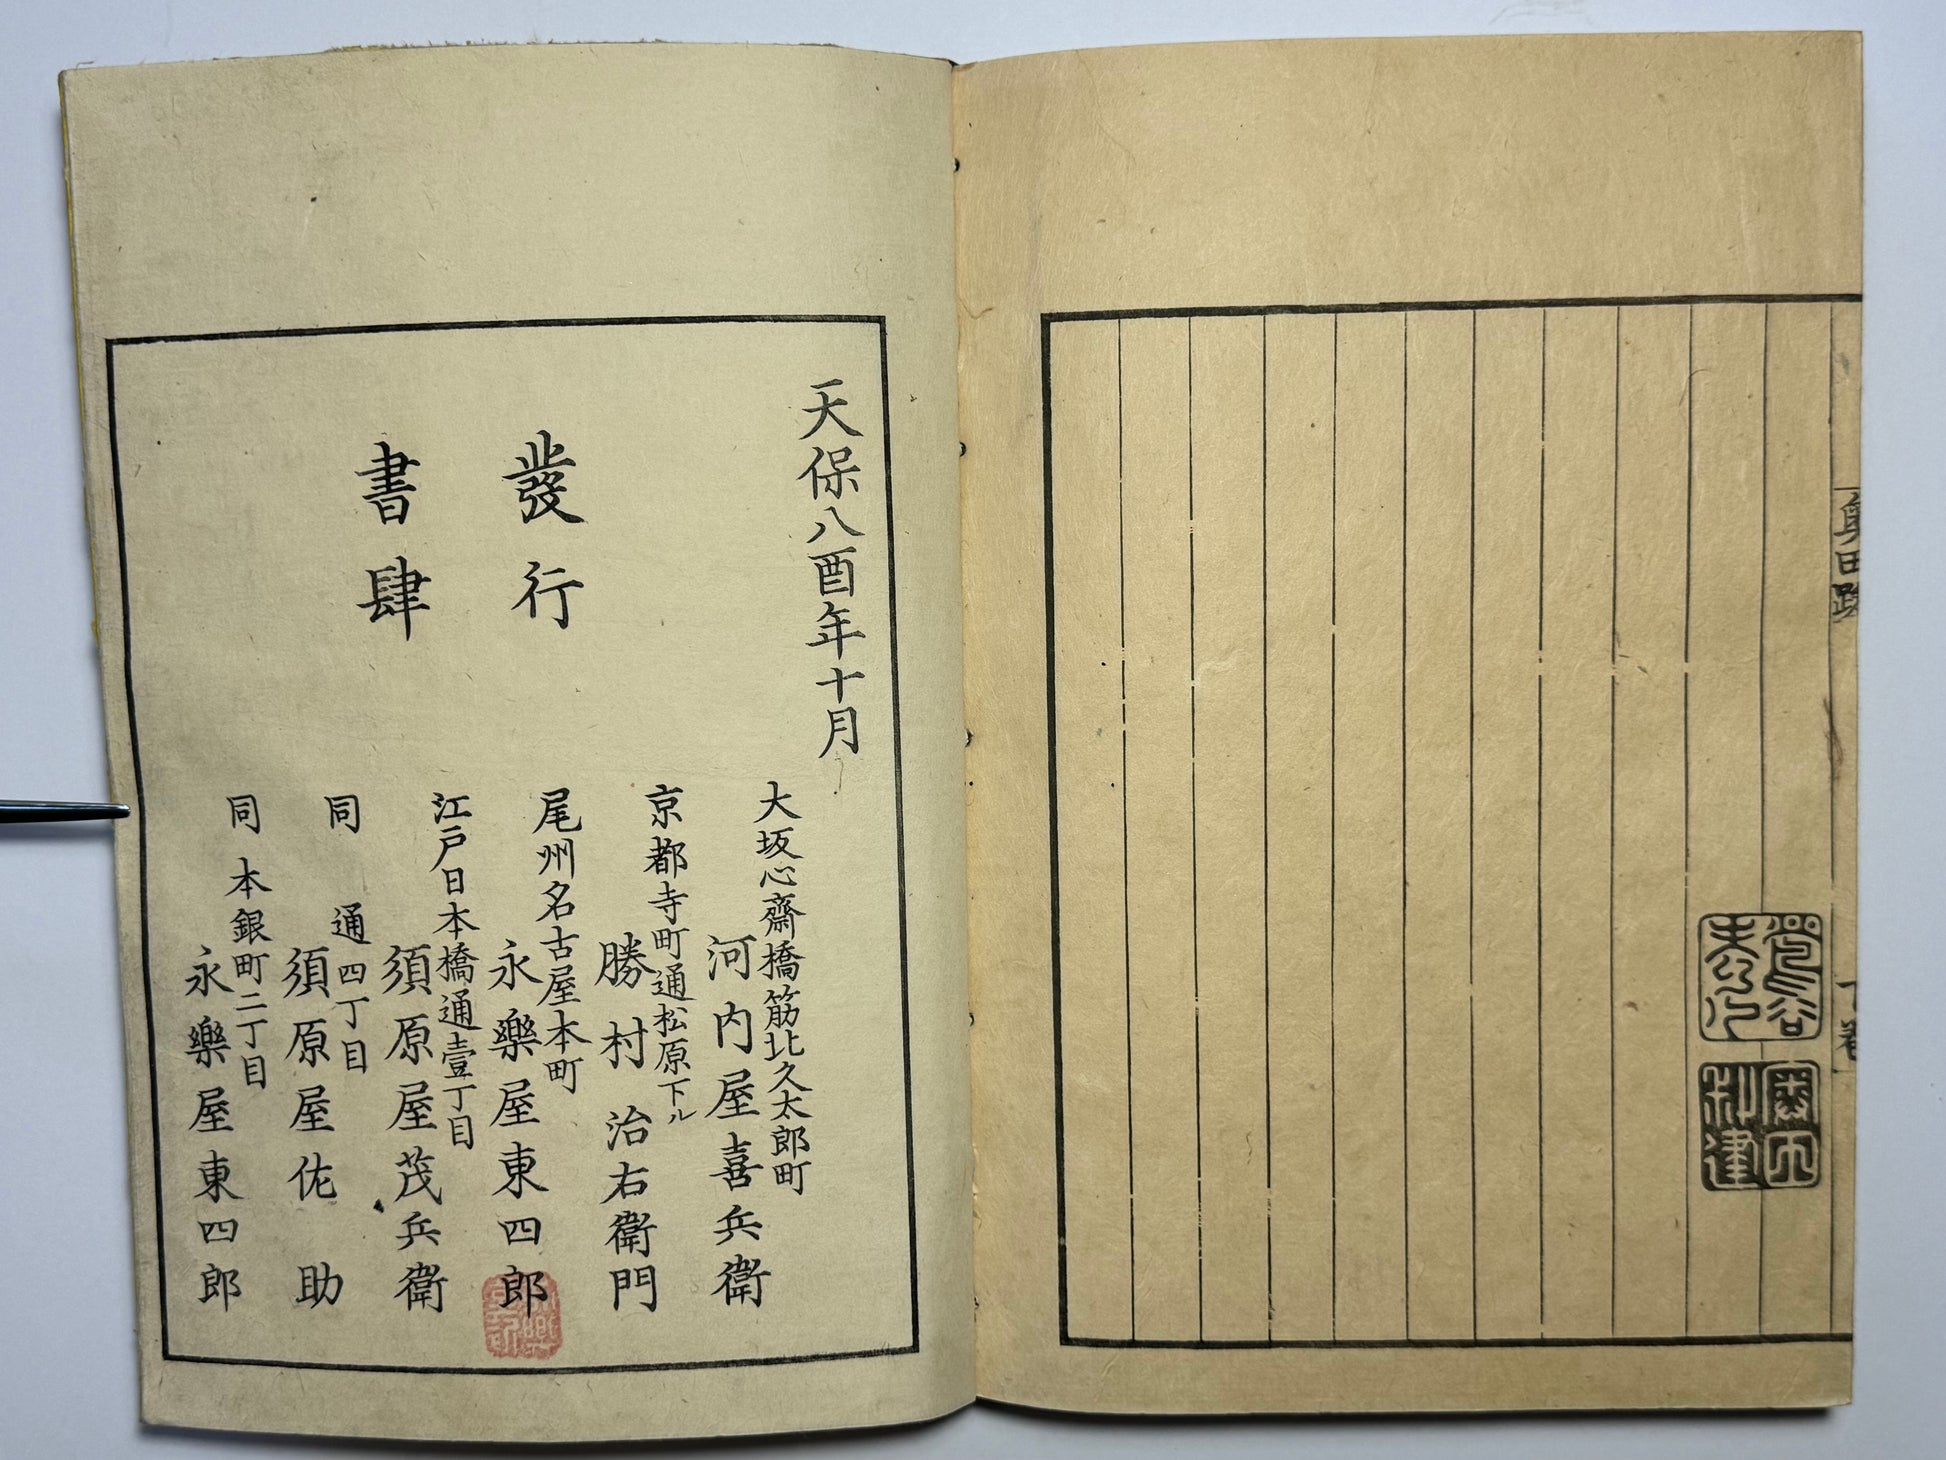 奥田
下卷
天保八酉年十月
發行
書肆
大坂心齋橋筋北久太郎町
河內屋喜兵衛
京都寺町通松原下ル
勝村治右衛門
尾州名古屋本町
永樂屋東四郎
江戸日本橋通壹丁目
須原屋茂兵衛
同 通四丁目
須原屋佐助
同 本銀町二丁目
永樂屋東四郎